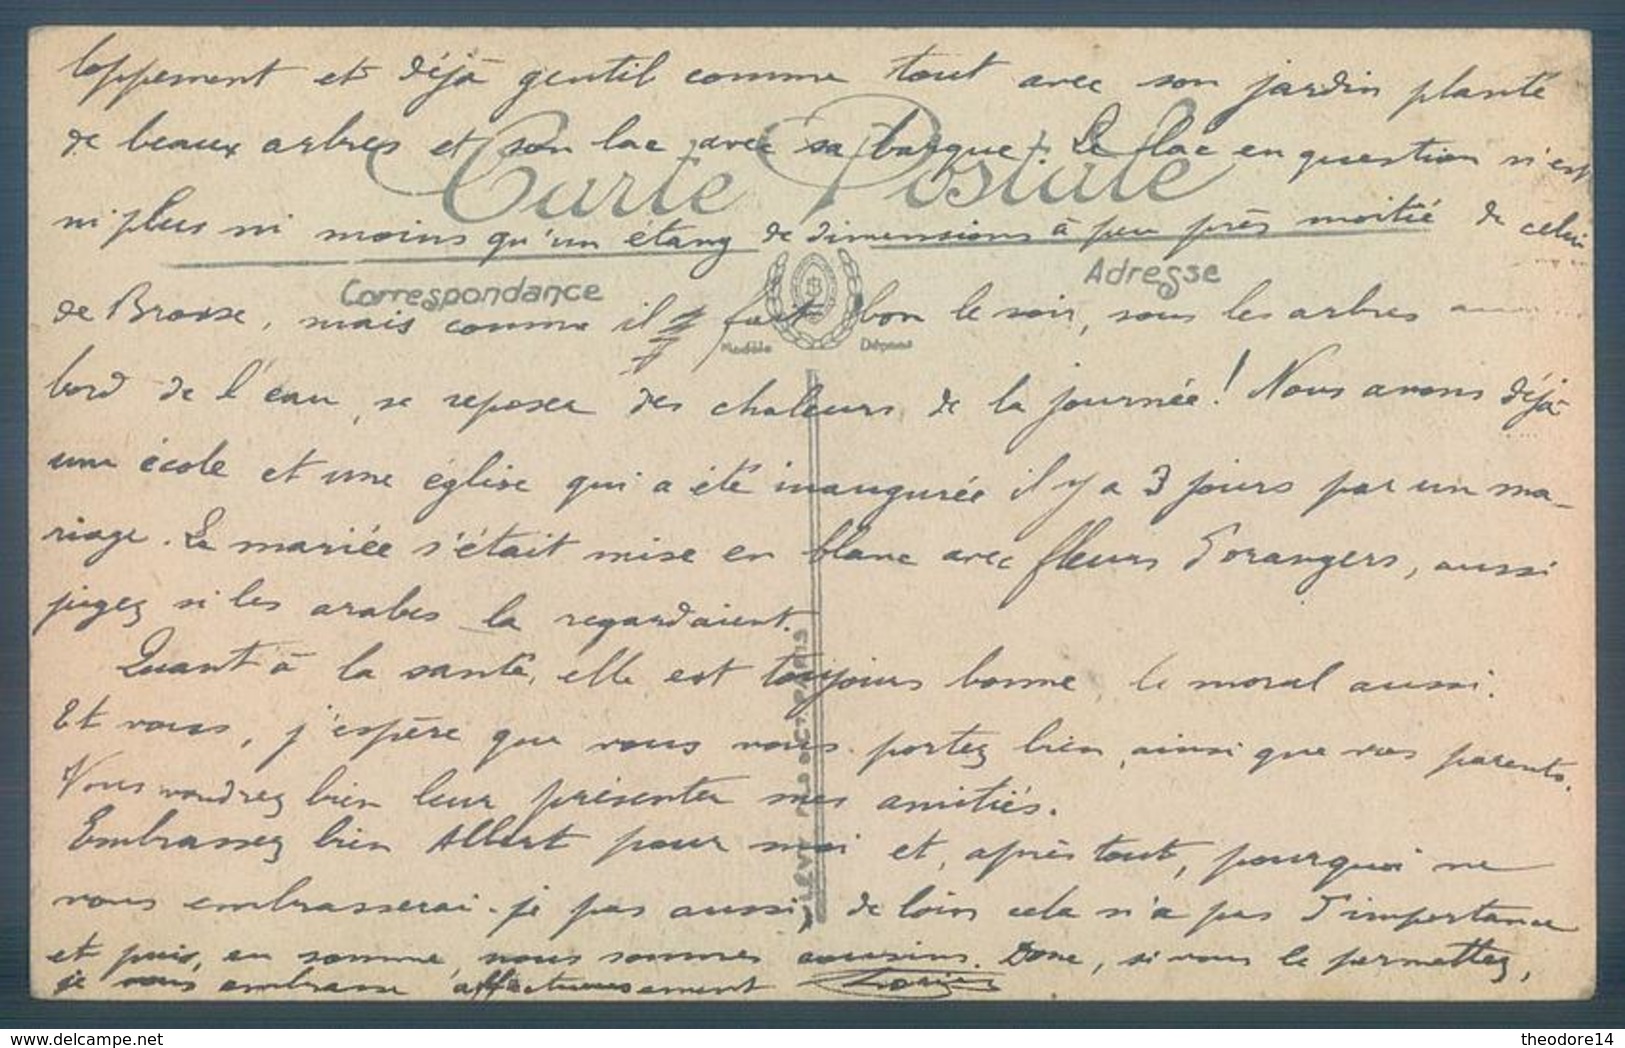 loppement et déjà gentil comme tout avec son jardin planté
de beaux arbres et son lac avec sa barque. Le lac en question n'est
Carte Postale
ni plus ni moins qu'un étang de dimensions à peu près moitié de celui
Correspondance
Adresse
de Brosse, mais comme il fait bon le soir, sous les arbres au
Modèle Déposé
bord de l'eau, se reposer des chaleurs de la journée! Nous avons déjà
une école et une église qui a été inaugurée il y a 3 jours par un ma-
riage. La mariée s'était mise en blanc avec fleurs d'orangers, aussi
jugez si les arabes la regardaient.
Quant à la santé, elle est toujours bonne, le moral aussi.
Et vous, j'espère que vous vous portez bien, ainsi que vos parents.
Vous voudrez bien leur présenter mes amitiés.
Embrassez bien Albert pour moi et, après tout, pourquoi ne
vous embrasserai-je pas aussi, de loin cela n'a pas d'importance
et puis, en somme, nous sommes cousins. Donc, si vous le permettez,
je vous embrasse affectueusement
LÉVY FILS & Cie PARIS
theodore14